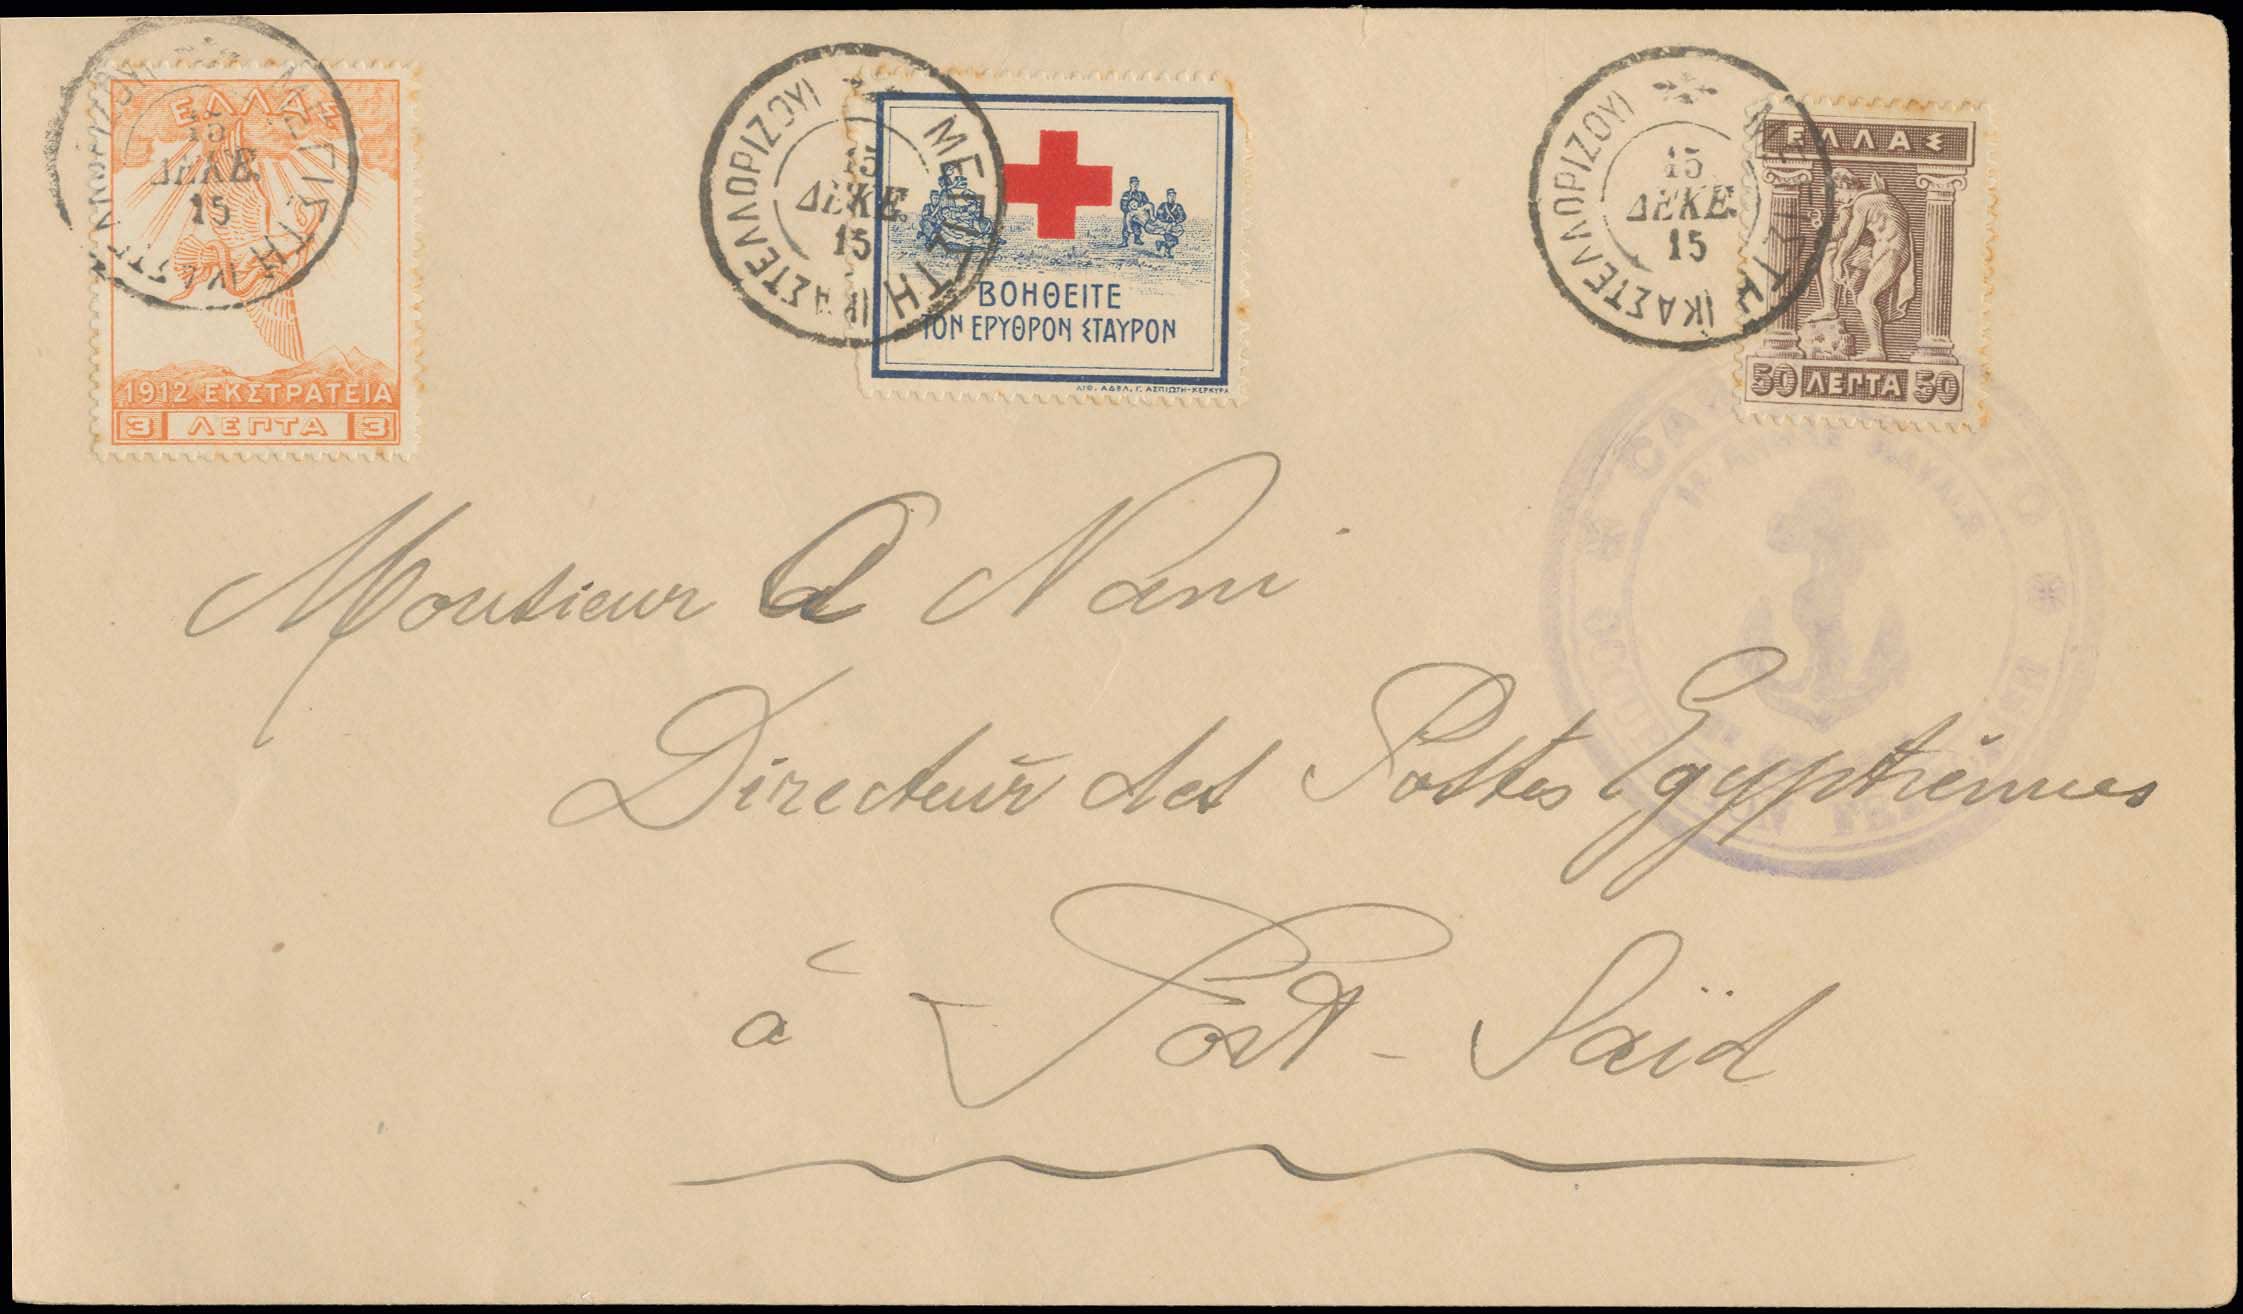 ΕΛΛΑΣ
1912 ΕΚΣΤΡΑΤΕΙΑ
3 ΛΕΠΤΑ 3
ΜΕΓΙΣΤΗ
15
ΔΕΚΕ.
15
ΒΟΗΘΕΙΤΕ
ΤΟΝ ΕΡΥΘΡΟΝ ΣΤΑΥΡΟΝ
ΛΙΘ. ΑΔΕΛ. Γ. ΑΣΠΙΩΤΗ-ΚΕΡΚΥΡΑ
ΜΕΓΙΣΤΗ
ΙΚΑΣΤΕΛΛΟΡΙΖΟΥΙ
15
ΔΕΚΕ.
15
ΕΛΛΑΣ
50 ΛΕΠΤΑ 50
ΜΕΓΙΣΤΗ
ΙΚΑΣΤΕΛΛΟΡΙΖΟΥΙ
15
ΔΕΚΕ.
15
Monsieur A Nani
Directeur des Postes Egyptiennes
à Port-Saïd